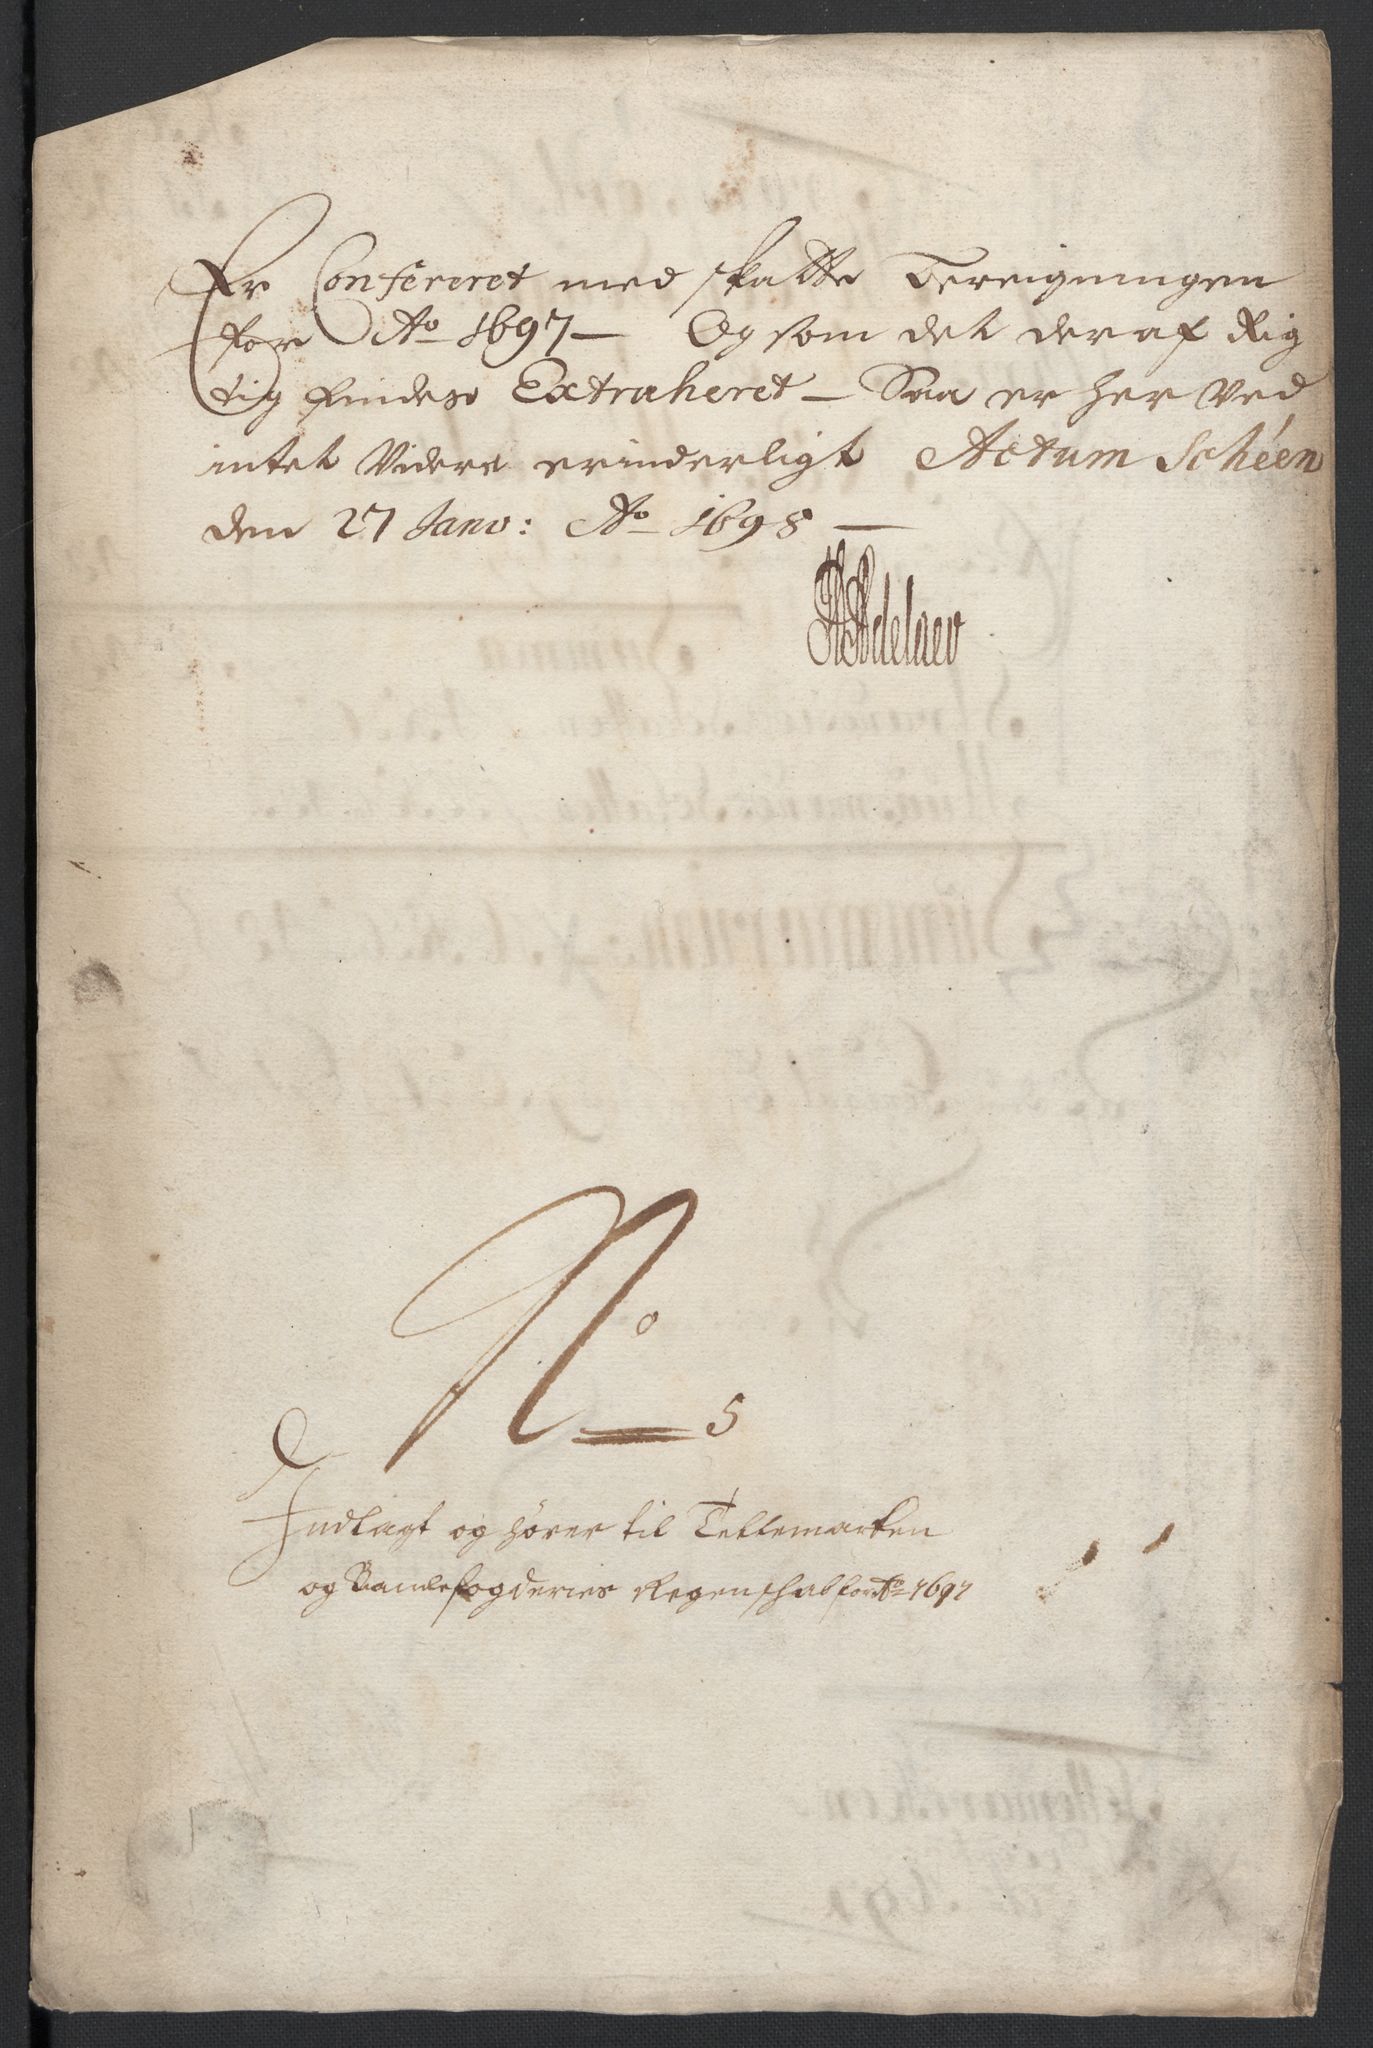 Er Confereret med skatte Bereigningen
for Ao 1697 — Og som det deraf Rig
tig findes Extraheret — Saa er her ved
intet Videre erinderligt Actum Schéen
den 27 Janv: Ao 1698 —
HAdelaer
No 5
Indlagt og hörer til Tellemarken
og Bamble fogderies Regenschab for Ao 1697